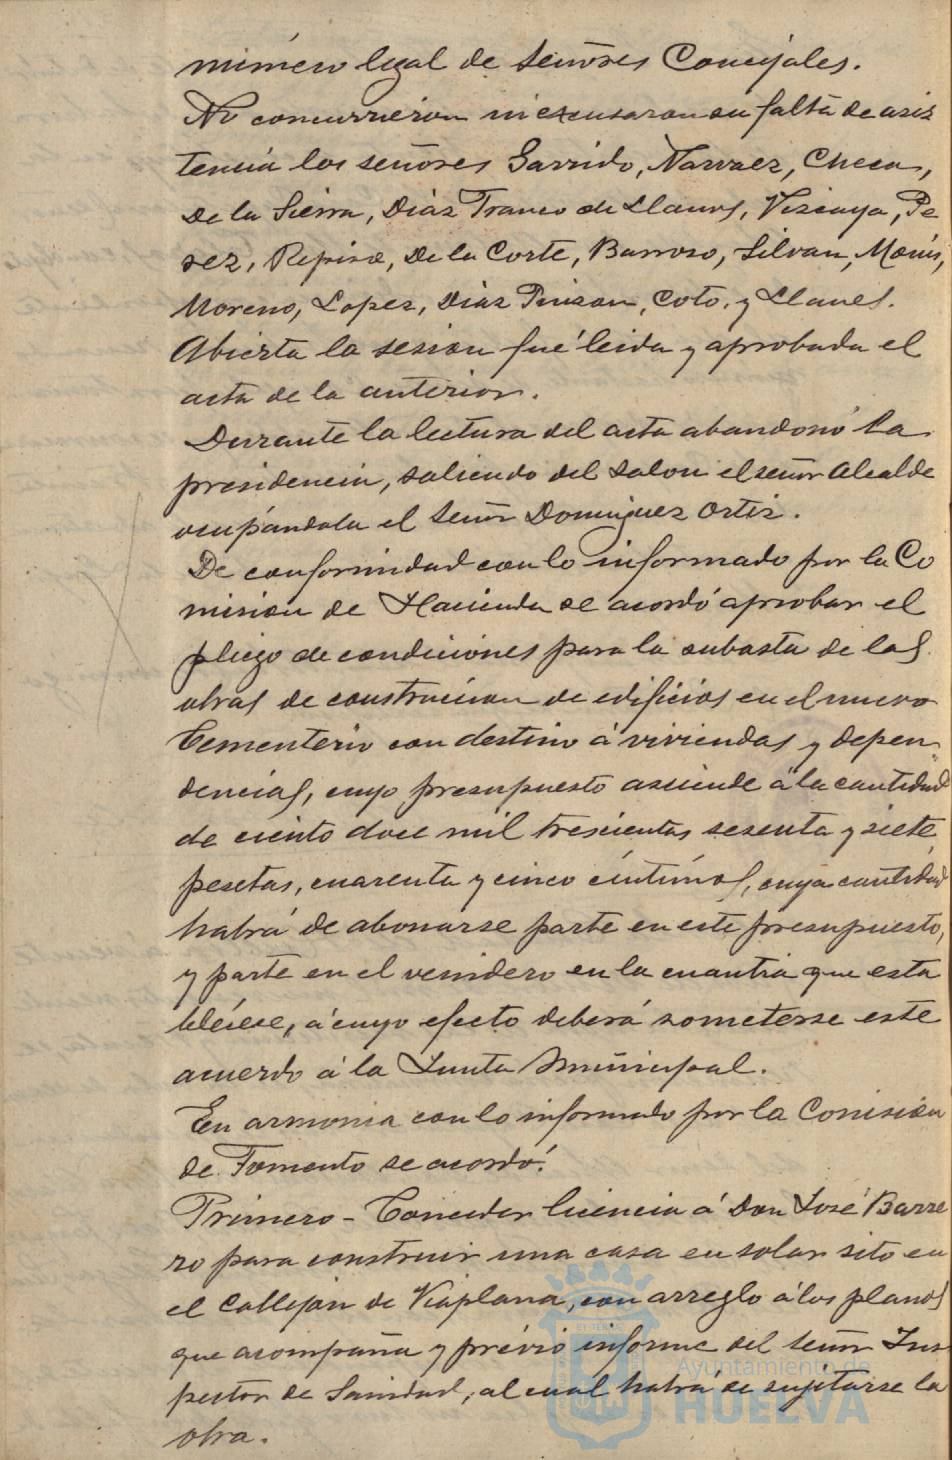 número legal de señores Concejales.
No concurrieron ni excusaron su falta de asis
tencia los señores Garrido, Narvaez, Checa,
De la Sierra, Diaz Franco de Llanos, Vizcaya, Pe
rez, Repiso, De la Corte, Barroso, Silvan, Marin,
Moreno, Lopez, Diaz Pinzon, Coto, y Llanes.
Abierta la sesion fué leida y aprobada el
acta de la anterior.
Durante la lectura del acta abandonó la
presidencia, saliendo del salon el señor Alcalde
ocupándola el señor Dominguez Ortiz.
De conformidad con lo informado por la Co
mision de Hacienda se acordó aprobar el
pliego de condiciones para la subasta de las
obras de construcion de edificios en el nuevo
Cementerio con destino á viviendas y depen-
dencias, cuyo presupuesto asciende á la cantidad
de ciento doce mil trescientas sesenta y siete
pesetas, cuarenta y cinco céntimos, cuya cantidad
habrá de abonarse parte en este presupuesto,
y parte en el venidero en la cuantia que esta
bléiese, á cuyo efecto deberá someterse este
acuerdo á la Junta Municipal.
En armonia con lo informado por la Comision
de Fomento se acordó:
Primero - Conceder licencia á Don José Barre
ro para construir una casa en solar sito en
el Callejon de Viaplana, con arreglo á los planos
que acompaña y prévio informe del señor Ins
pector de Sanidad, al cual habrá de sujetarse la
obra.
Ayuntamiento de
HUELVA